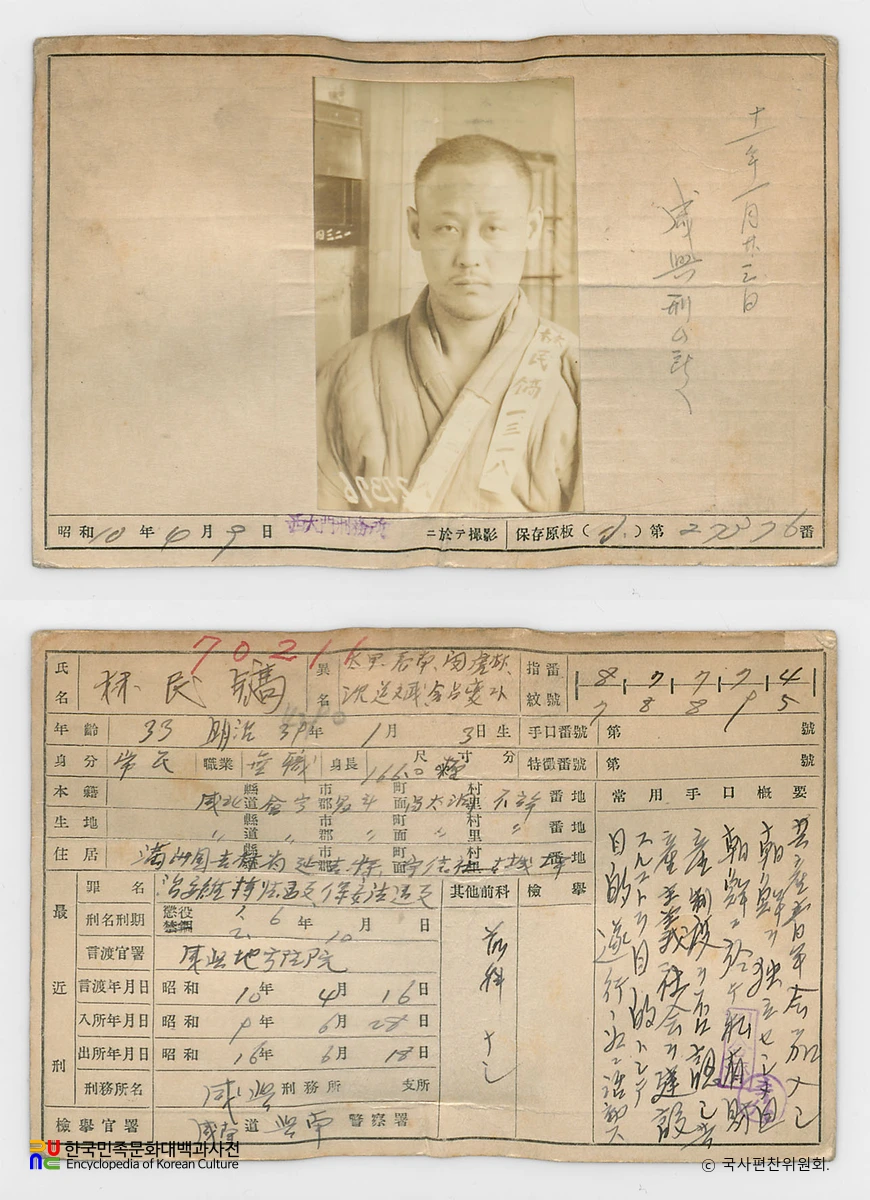 十一年一月廿三日
咸興刑ムショへ
林民鎬 一三一八
昭和10年4月9日 西大門刑務所 ニ於テ撮影 保存原板( )第27376番
70211
氏名 林民鎬 異名
指紋番號 8 7 7 7 4
7 8 8 9 5
年齡 33 明治39年1月3日生 手口番號 第 號
身分 常民 職業 無職 身長 尺寸分 166.0糎 特徵番號 第 號
本籍 咸北 縣道 會寧 市郡 町面 村里 不詳 番地
生地 〃 縣道 〃 市郡 〃 町面 〃 村里 〃 番地
住居 滿洲國吉林省延吉縣
常用手口概要
共產靑年會加入シ
朝鮮ヲ獨立セシメ且
朝鮮ニ於ケル私有財
產制度ヲ否認シ共
產主義社會ヲ建設
スルコトヲ目的トシテ
目的遂行ニ活動ス
最近刑
罪名 治安維持法違反 保安法違反
刑名刑期 懲役 禁錮 6年 月
言渡官署 咸興地方法院
言渡年月日 昭和10年4月16日
入所年月日 昭和9年6月28日
出所年月日 昭和16年6月18日
刑務所名 咸興刑務所 支所
檢擧官署 咸南道興南警察署
其他前科 檢擧
前科ナシ
한국민족문화대백과사전
Encyclopedia of Korean Culture
© 국사편찬위원회.